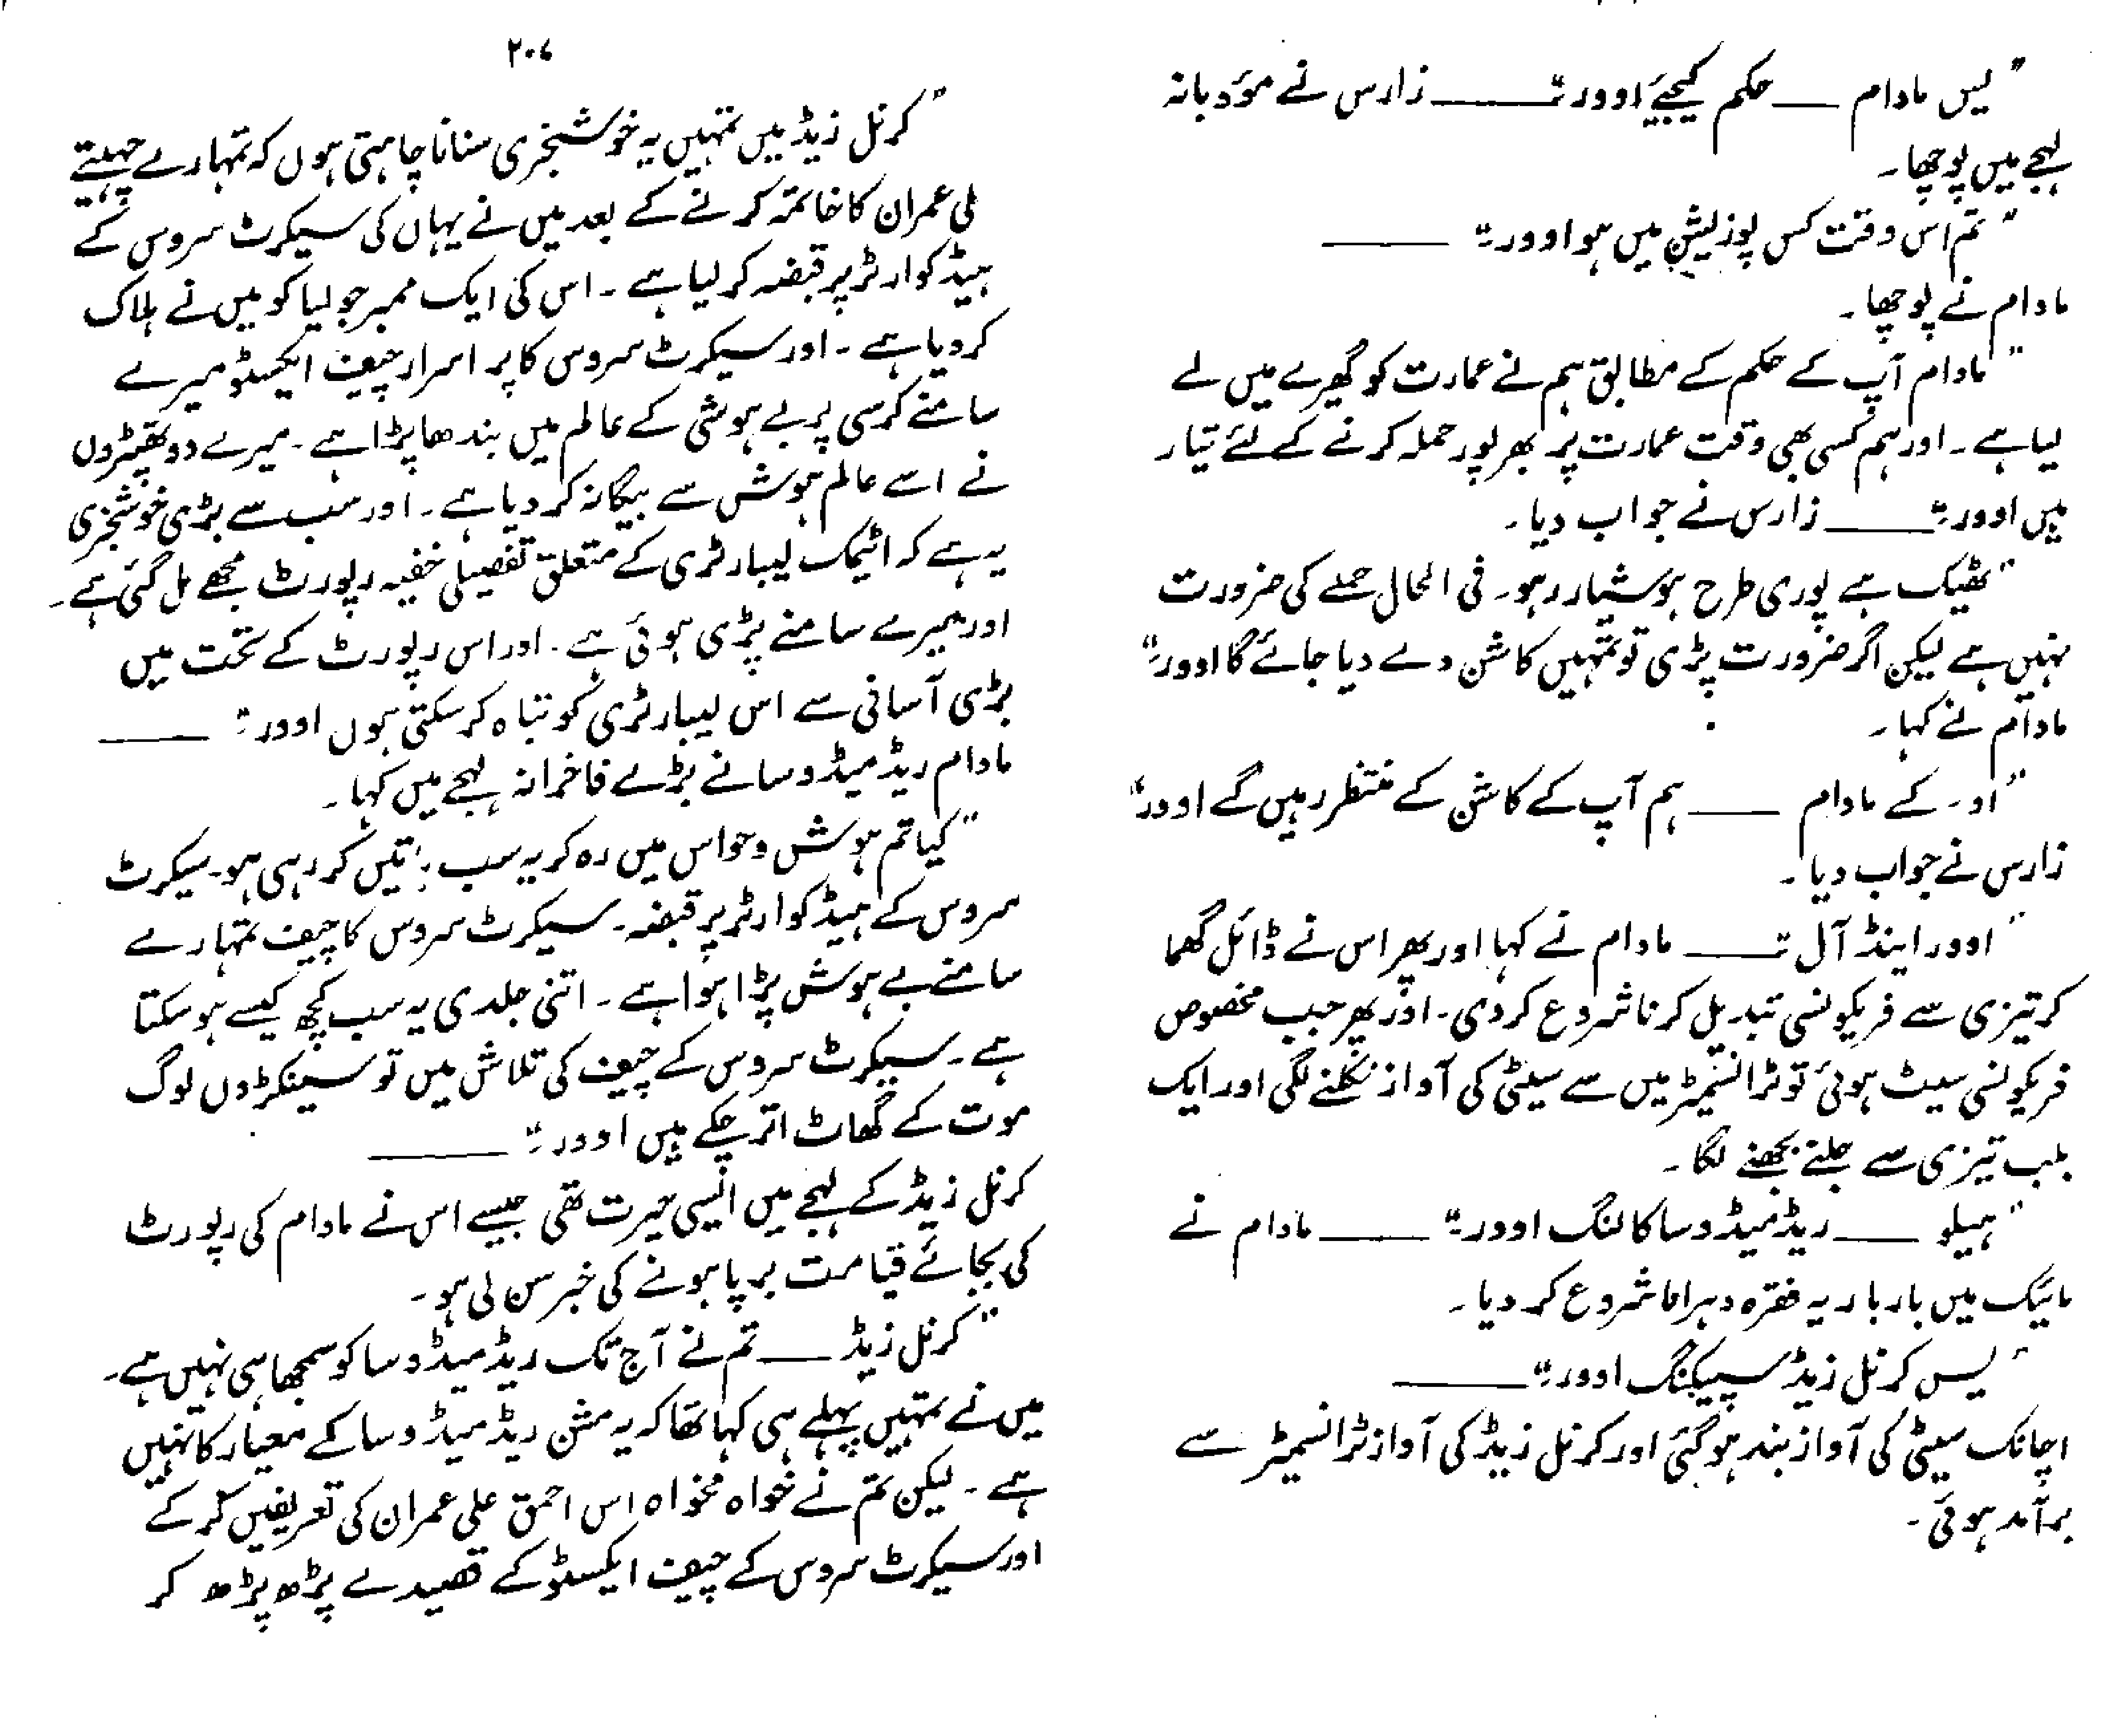 "یس مادام ــــ حکم کیجیئے اوور"ــــــ زارس نے مؤدبانہ
لہجے میں پوچھا۔
"تم اس وقت کس پوزیشن میں ہو اوور"ــــــ
مادام نے پوچھا۔
"مادام آپ کے حکم کے مطابق ہم نے عمارت کو گھیرے میں لے
لیا ہے۔ اور ہم کسی بھی وقت عمارت پر بھرپور حملہ کرنے کے لئے تیار
ہیں اوور"ــــــ زارس نے جواب دیا۔
"ٹھیک ہے پوری طرح ہوشیار رہو۔ فی الحال حملے کی ضرورت
نہیں ہے لیکن اگر ضرورت پڑی تو تمہیں کاشن دے دیا جائے گا اوور"
مادام نے کہا۔
"او۔ کے مادام ــــــ ہم آپ کے کاشن کے منتظر رہیں گے اوور"
زارس نے جواب دیا۔
"اوور اینڈ آل"ــــــ مادام نے کہا اور پھر اس نے ڈائل گھما
کر تیزی سے فریکونسی تبدیل کرنا شروع کردی۔ اور پھر جب مخصوص
فریکونسی سیٹ ہوئی تو ٹرانسمیٹر میں سے سیٹی کی آواز نکلنے لگی اور ایک
بلب تیزی سے جلنے بجھنے لگا۔
"ہیلو ــــــ ریڈ میڈوسا کالنگ اوور"ــــــ مادام نے
مائیک میں بار بار یہ فقرہ دہرانا شروع کر دیا۔
"یس کرنل زیڈ سپیکنگ اوور"ــــــ
اچانک سیٹی کی آواز بند ہوگئی اور کرنل زیڈ کی آواز ٹرانسمیٹر سے
برآمد ہوئی۔
۲۰۷
"کرنل زیڈ میں تمہیں یہ خوشخبری سنانا چاہتی ہوں کہ تمہارے چہیتے
علی عمران کا خاتمہ کرنے کے بعد میں نے یہاں کی سیکرٹ سروس کے
ہیڈ کوارٹر پر قبضہ کر لیا ہے۔ اس کی ایک ممبر جولیا کو میں نے ہلاک
کر دیا ہے۔ اور سیکرٹ سروس کا پر اسرار چیف ایکسٹو میرے
سامنے کرسی پر بے ہوشی کے عالم میں بندھا پڑا ہے۔ میرے دو تھپڑوں
نے اسے عالم ہوش سے بیگانہ کر دیا ہے۔ اور سب سے بڑی خوشخبری
یہ ہے کہ اٹیمک لیبارٹری کے متعلق تفصیلی خفیہ رپورٹ مجھے مل گئی ہے۔
اور میرے سامنے پڑی ہوئی ہے۔ اور اس رپورٹ کے تحت میں
بڑی آسانی سے اس لیبارٹری کو تباہ کر سکتی ہوں اوور"ــــــ
مادام ریڈ میڈوسا نے بڑے فاخرانہ لہجے میں کہا۔
"کیا تم ہوش و حواس میں رہ کر یہ سب باتیں کر رہی ہو۔ سیکرٹ
سروس کے ہیڈ کوارٹر پر قبضہ۔ سیکرٹ سروس کا چیف تمہارے
سامنے بے ہوش پڑا ہوا ہے۔ اتنی جلدی یہ سب کچھ کیسے ہو سکتا
ہے۔ سیکرٹ سروس کے چیف کی تلاش میں تو سینکڑوں لوگ
موت کے گھاٹ اتر چکے ہیں اوور"ــــــ
کرنل زیڈ کے لہجے میں ایسی حیرت تھی جیسے اس نے مادام کی رپورٹ
کی بجائے قیامت برپا ہونے کی خبر سن لی ہو۔
"کرنل زیڈ ــــــ تم نے آج تک ریڈ میڈوسا کو سمجھا ہی نہیں ہے۔
میں نے تمہیں پہلے ہی کہا تھا کہ یہ مشن ریڈ میڈوسا کے معیار کا نہیں
ہے۔ لیکن تم نے خواہ مخواہ اس احمق علی عمران کی تعریفیں کر کے
اور سیکرٹ سروس کے چیف ایکسٹو کے قصیدے پڑھ پڑھ کر